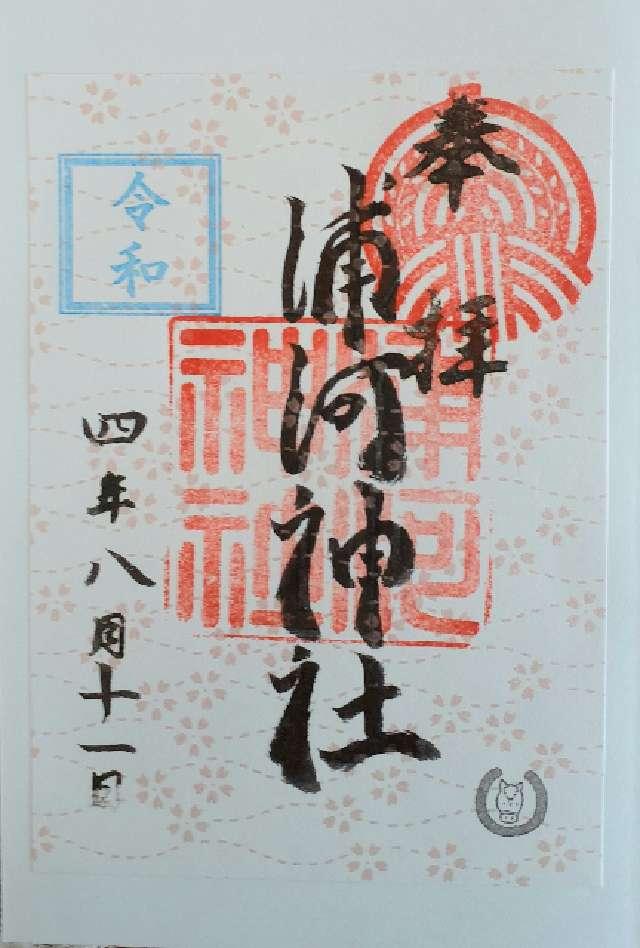 奉拝
浦河神社
浦河
神社
令和
四年八月十一日